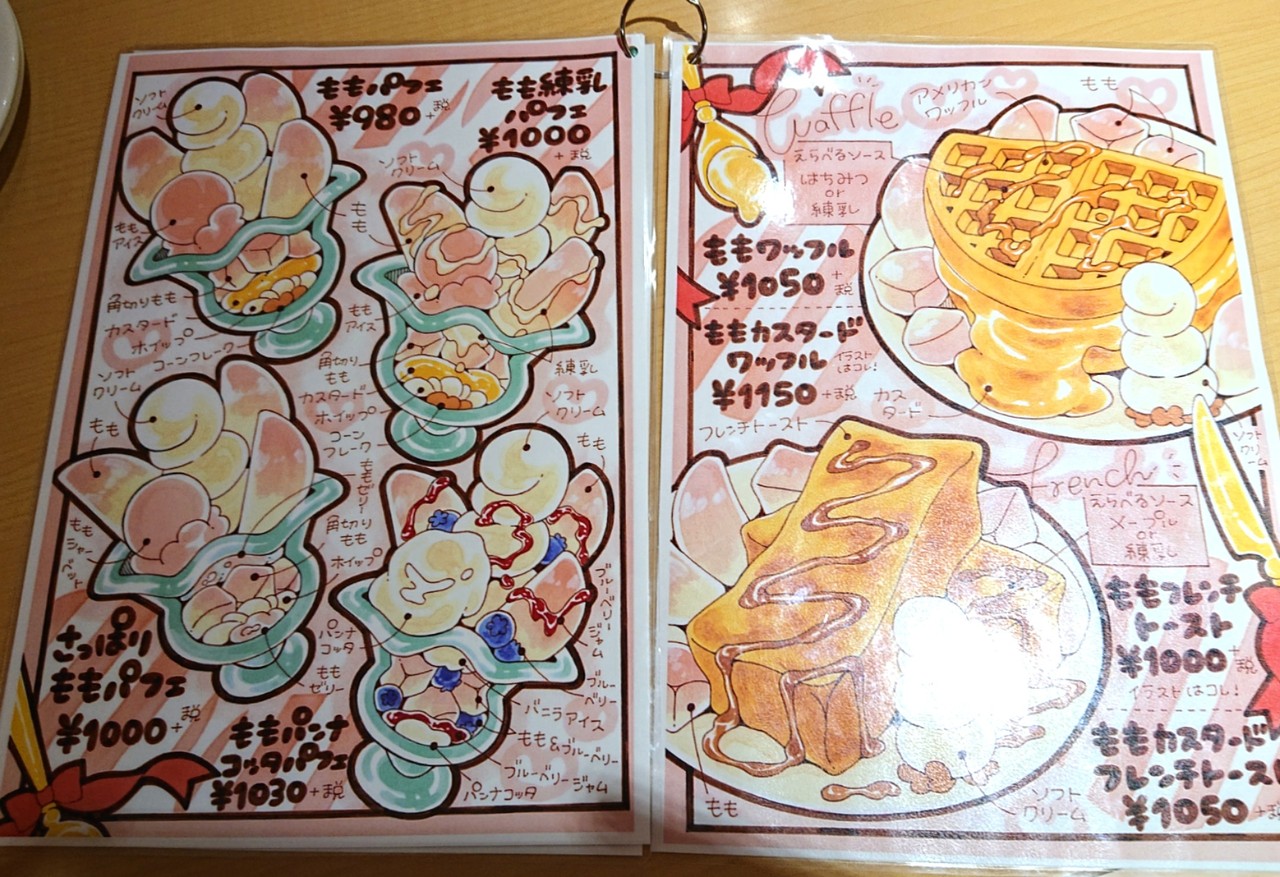 ももパフェ
¥980+税
ソフト
クリーム
もも
ももアイス
角切りもも
カスタード
ホイップ
コーンフレーク
もも練乳
パフェ
¥1000
+税
ソフト
クリーム
もも
もも
アイス
角切り
もも
カスタード
ホイップ
コーン
フレーク
練乳
ソフト
クリーム
もも
もも
シャー
ベット
ももゼリー
角切り
もも
ホイップ
もも
ゼリー
さっぱり
ももパフェ
¥1000+税
ソフト
クリーム
もも
ブルーベリー
ジャム
ブルー
ベリー
バニラアイス
もも&ブルーベリー
ブルーベリージャム
パンナコッタ
パンナ
コッタ
ももパンナ
コッタパフェ
¥1030+税
Waffle
アメリカン
ワッフル
もも
えらべるソース
はちみつ
or
練乳
ももワッフル
¥1050+税
ももカスタード
ワッフル
イラスト
はコレ!
¥1150+税
カス
タード
ソフト
クリーム
フレンチトースト
French
えらべるソース
メープル
or
練乳
ももフレンチ
トースト
¥1000+税
イラストはコレ!
ももカスタード
フレンチトースト
¥1050+税
もも
ソフト
クリーム